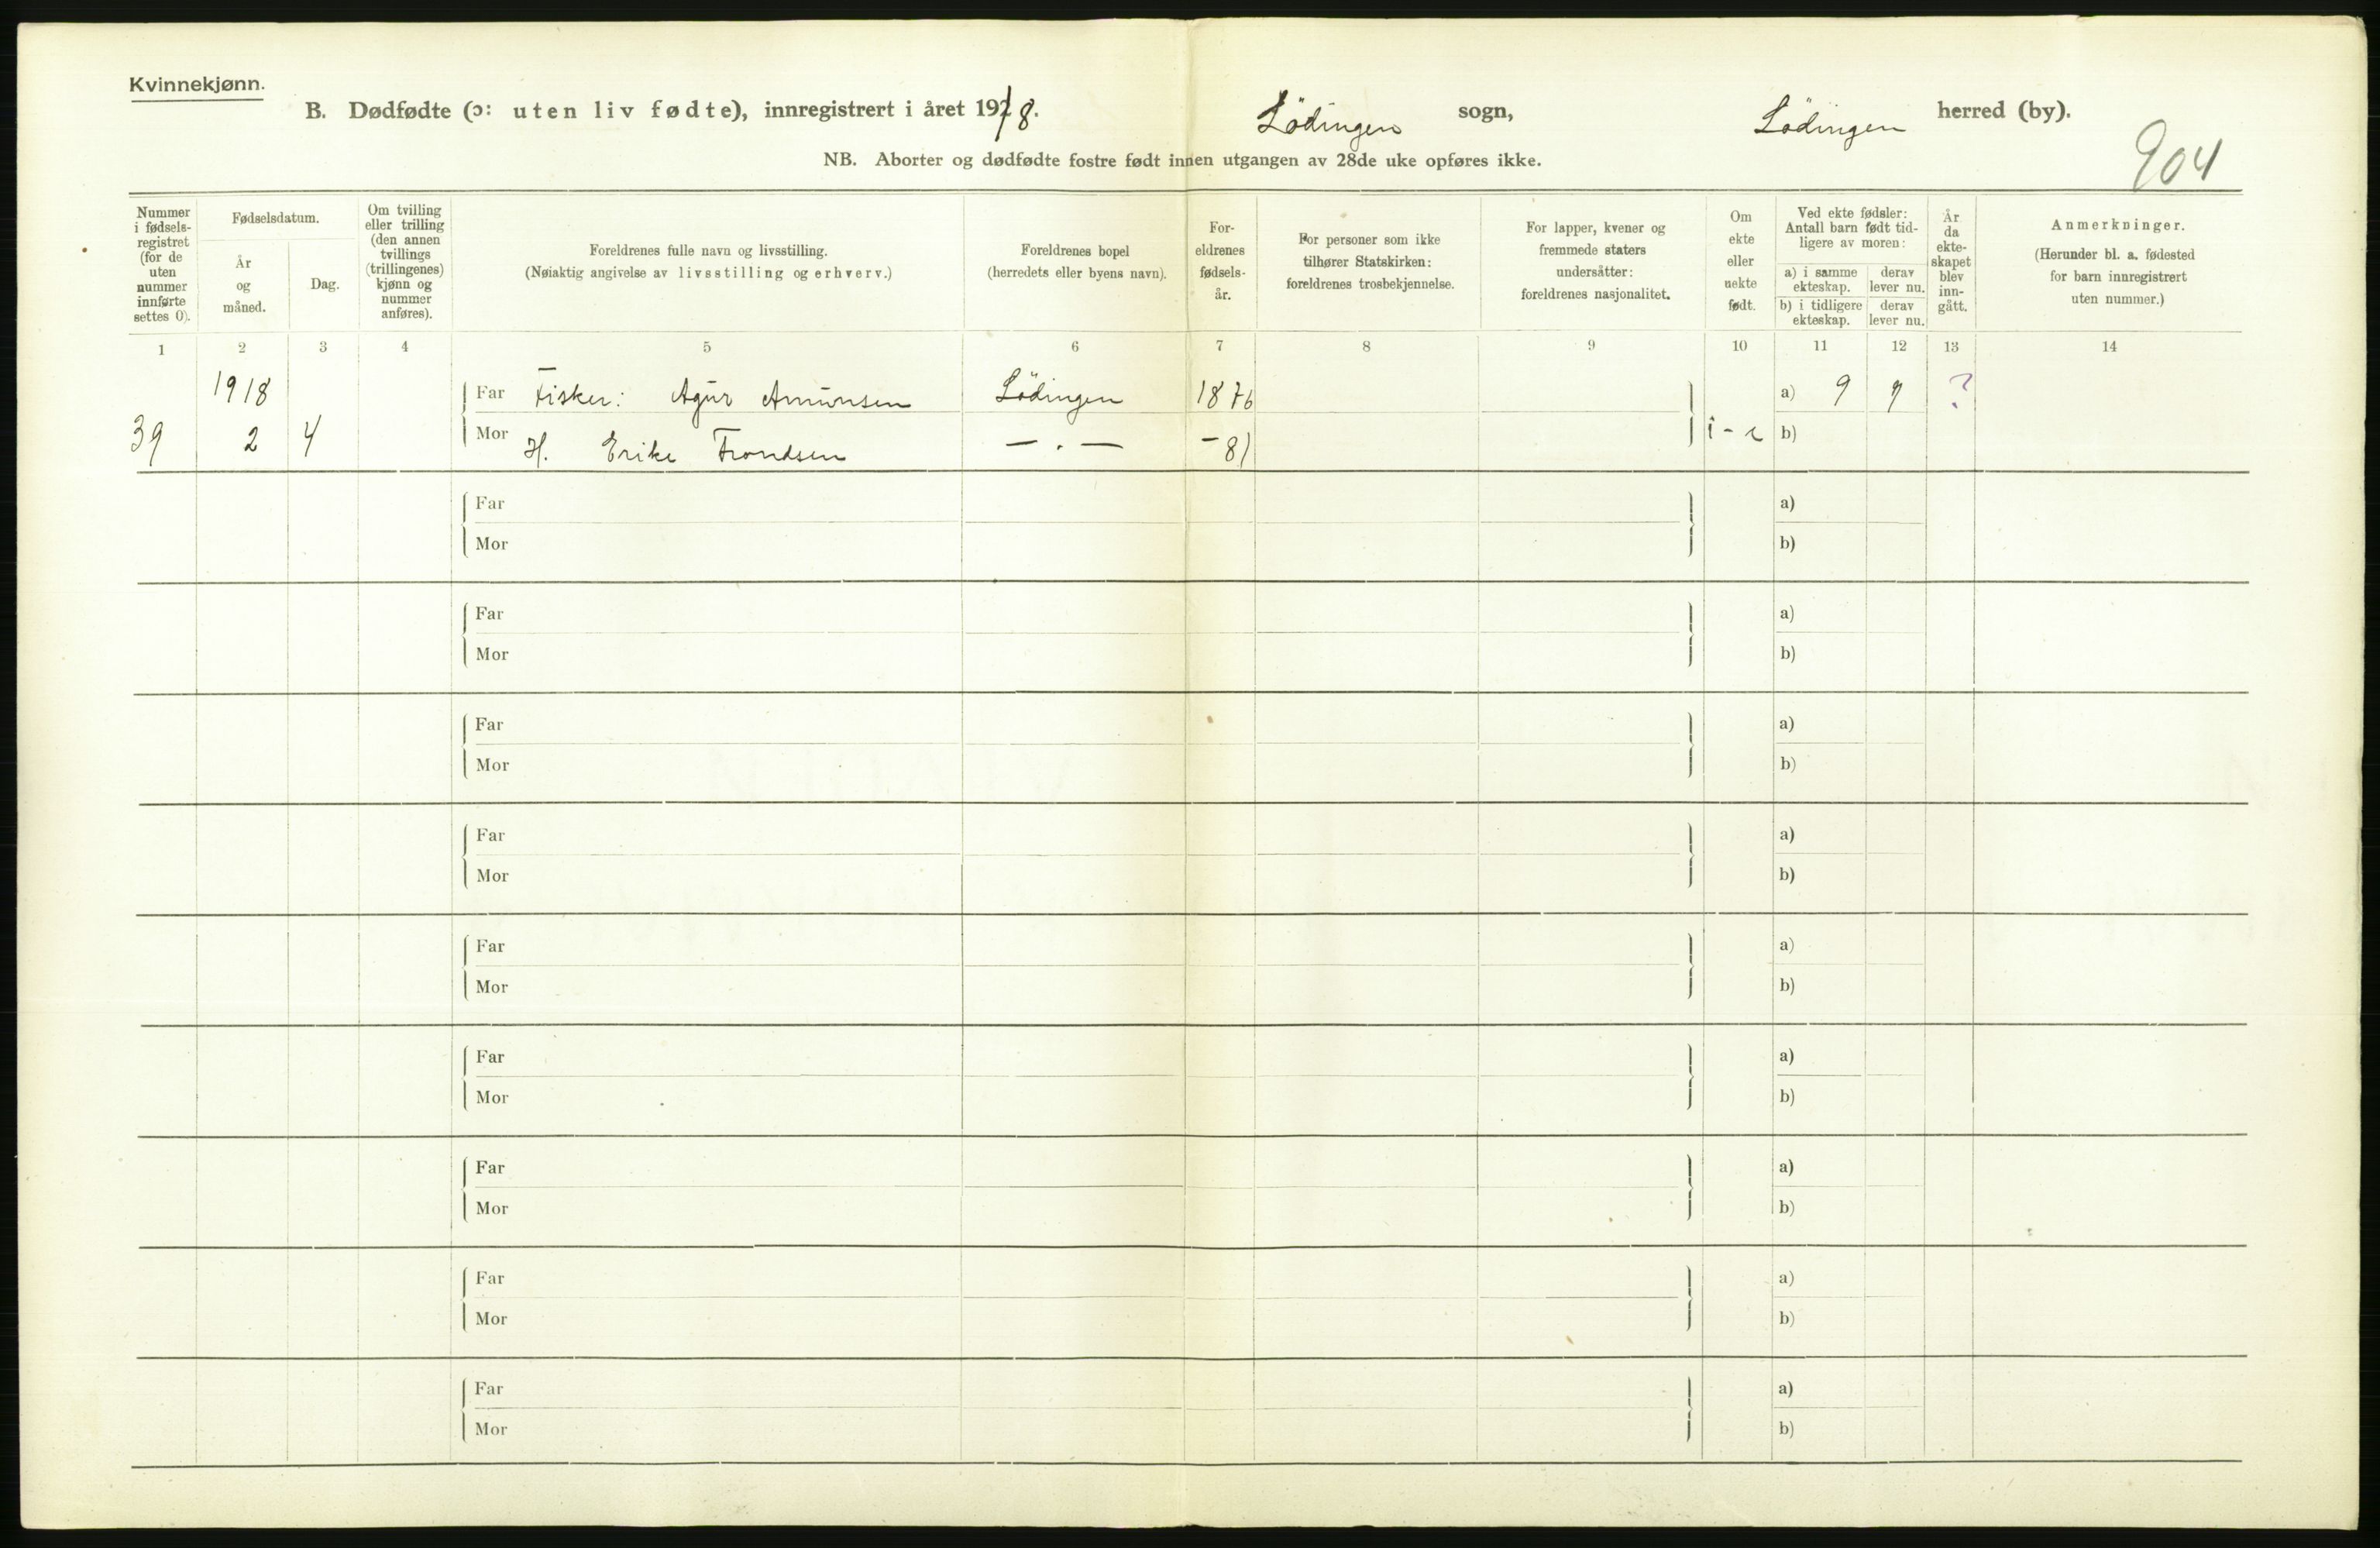 Kvinnekjønn.
B. Dødfødte (ɔ: uten liv fødte), innregistrert i året 1918. Lödingen sogn, Lödingen herred (by).
904
NB. Aborter og dødfødte fostre født innen utgangen av 28de uke opføres ikke.
Nummer
i fødsels-
registret
(for de
uten
nummer
innførte
settes 0).
Fødselsdatum.
År
og
måned.
Dag.
Om tvilling
eller trilling
(den annen
tvillings
(trillingenes)
kjønn og
nummer
anføres).
Foreldrenes fulle navn og livsstilling.
(Nøiaktig angivelse av livsstilling og erhverv.)
Foreldrenes bopel
(herredets eller byens navn).
For-
eldrenes
fødsels-
år.
For personer som ikke
tilhører Statskirken:
foreldrenes trosbekjennelse.
For lapper, kvener og
fremmede staters
undersåtter:
foreldrenes nasjonalitet.
Om
ekte
eller
uekte
født.
Ved ekte fødsler:
Antall barn født tid-
ligere av moren:
a) i samme
ekteskap.
derav
lever nu.
b) i tidligere
ekteskap.
derav
lever nu.
År
da
ekte-
skapet
blev
inn-
gått.
Anmerkninger.
(Herunder bl. a. fødested
for barn innregistrert
uten nummer.)
1 2 3 4 5 6 7 8 9 10 11 12 13 14
1918 Far Fisker: Agur Amunsen Lödingen 1876 a) 9 9 ?
39 2 4 Mor H. Erike Trondsen — . — - 81 i - e b)
Far a)
Mor b)
Far a)
Mor b)
Far a)
Mor b)
Far a)
Mor b)
Far a)
Mor b)
Far a)
Mor b)
Far a)
Mor b)
Far a)
Mor b)
Far a)
Mor b)